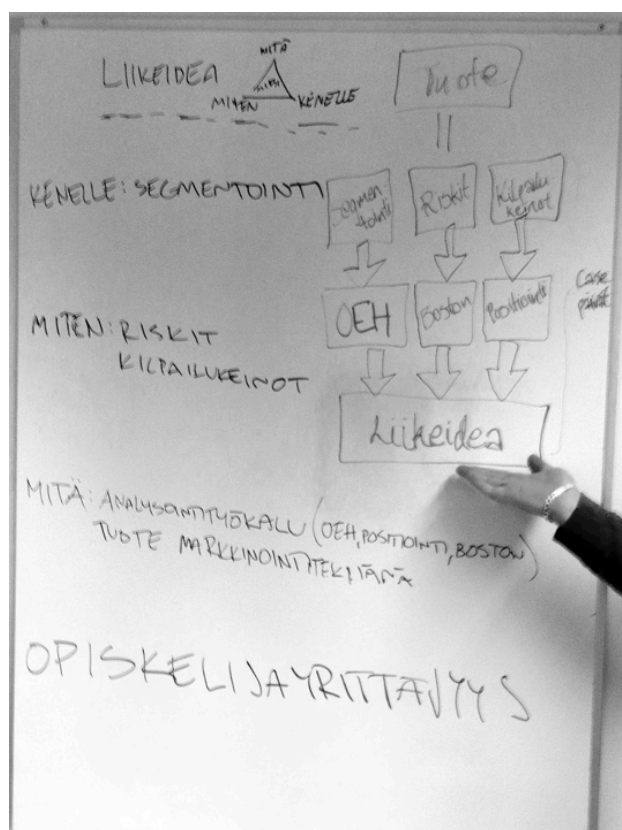 LIIKEIDEA
MITÄ
MITEN
KENELLE
Tuote
KENELLE: SEGMENTOINTI
Segmen-
tointi
Riskit
Kilpailu-
keinot
MITEN: RISKIT
KILPAILUKEINOT
OEH
Boston
Positiointi
Case
päivät
Liikeidea
MITÄ: ANALYSOINTITYÖKALU (OEH, POSITIOINTI, BOSTON)
TUOTE MARKKINOINTITEKIJÄNÄ
OPISKELIJAYRITTÄJYYS